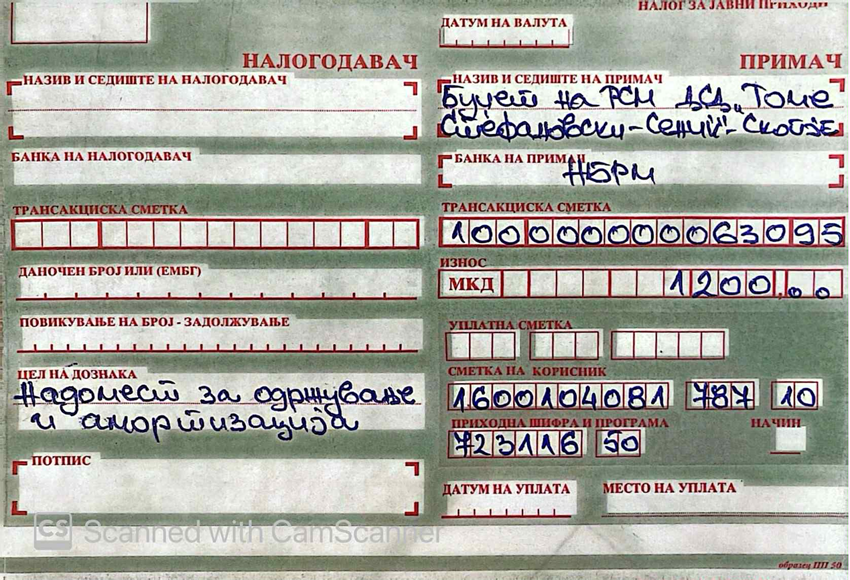 НАЛОГ ЗА ЈАВНИ ПРИХОДИ
ДАТУМ НА ВАЛУТА
НАЛОГОДАВАЧ
НАЗИВ И СЕДИШТЕ НА НАЛОГОДАВАЧ
БАНКА НА НАЛОГОДАВАЧ
ТРАНСАКЦИСКА СМЕТКА
ДАНОЧЕН БРОЈ ИЛИ (ЕМБГ)
ПОВИКУВАЊЕ НА БРОЈ - ЗАДОЛЖУВАЊЕ
ЦЕЛ НА ДОЗНАКА
Надомест за одржување
и амортизација
ПОТПИС
ПРИМАЧ
НАЗИВ И СЕДИШТЕ НА ПРИМАЧ
Буџет на РСМ ДСД „Томе
Стефановски-Сениќ"-Скопје
БАНКА НА ПРИМАЧ
НБРМ
ТРАНСАКЦИСКА СМЕТКА
100000000063095
ИЗНОС
МКД 1200,00
УПЛАТНА СМЕТКА
СМЕТКА НА КОРИСНИК
1600104081 787 10
ПРИХОДНА ШИФРА И ПРОГРАМА НАЧИН
723116 50
ДАТУМ НА УПЛАТА МЕСТО НА УПЛАТА
CS Scanned with CamScanner
образец ПП 50